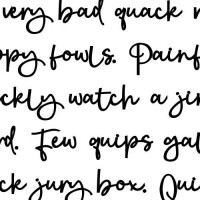 very bad quack m
ppy fowls. Painf
ckly watch a jin
d. Few quips gal
ck jury box. Qui